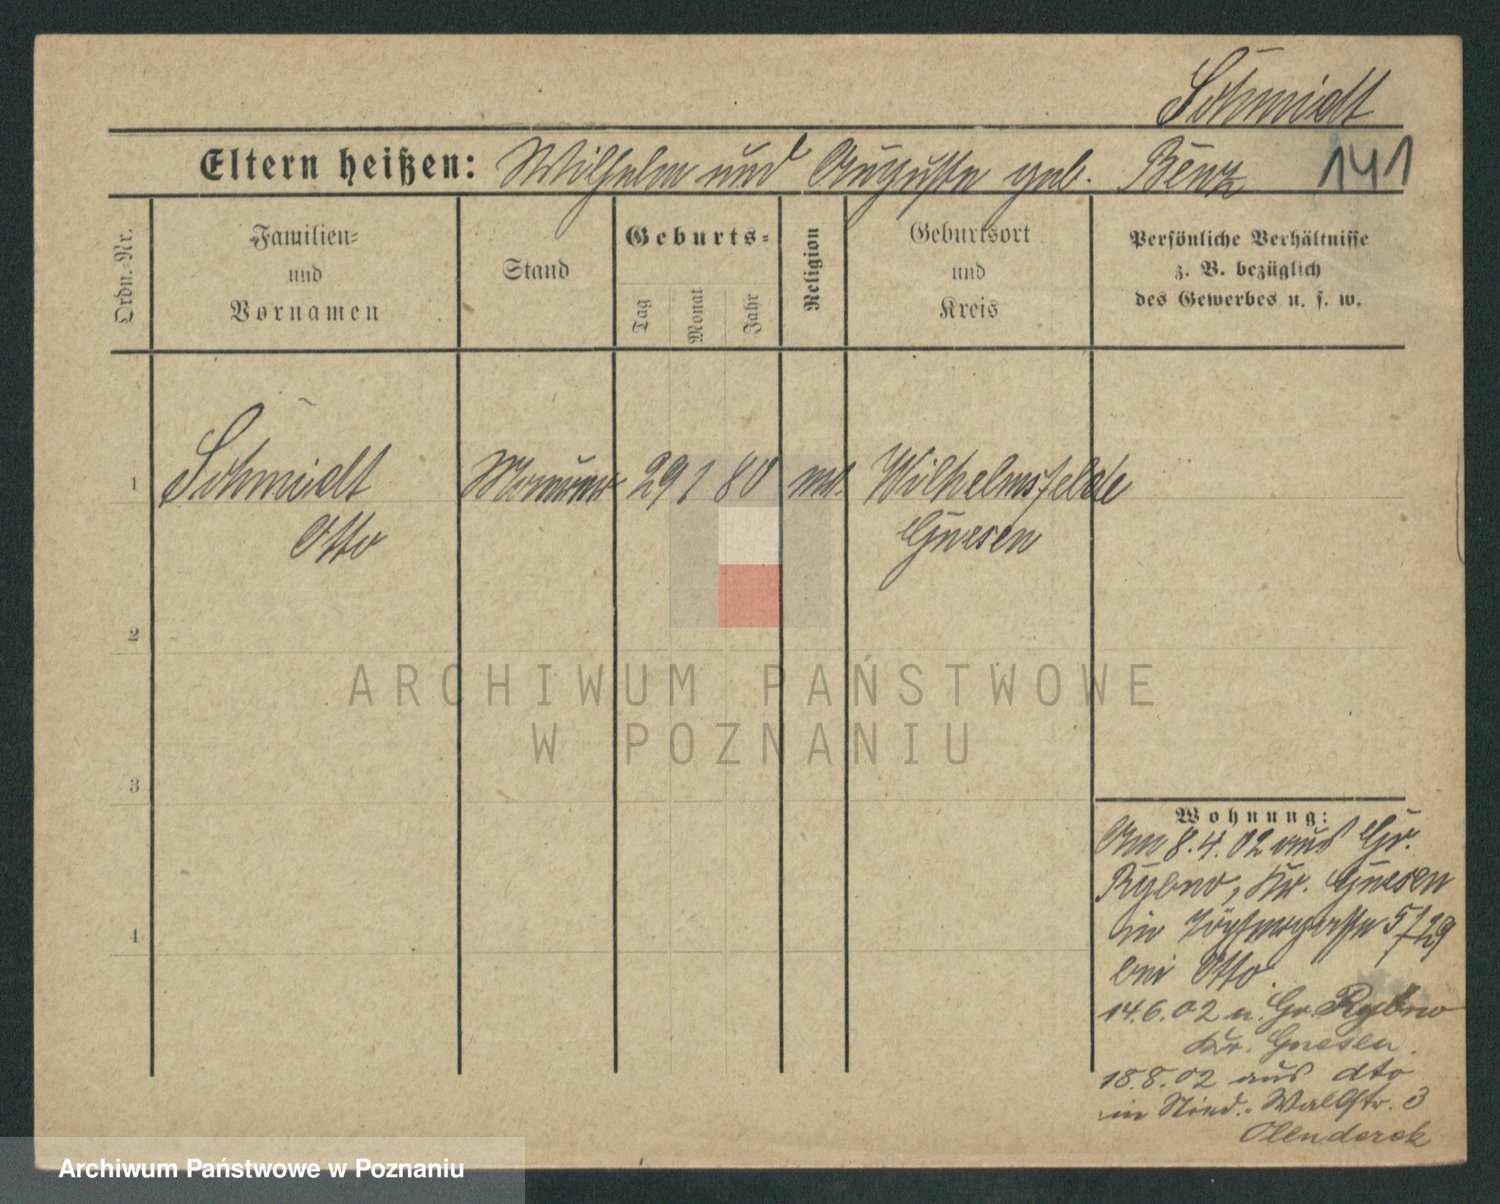 Schmidt
Eltern heißen: Wilhelm und Auguste geb. Benz 141
Ordn.-Nr.
Familien-
und
Vornamen
Stand
Geburts-
Tag
Monat
Jahr
Religion
Geburtsort
und
Kreis
Persönliche Verhältnisse
z. B. bezüglich
des Gewerbes u. s. w.
1 Schmidt Maurer 29 1 80 ev. Wilhelmsfelde
Otto Gnesen
2
3
4
ARCHIWUM PAŃSTWOWE
W POZNANIU
Wohnung:
Am 8.4.02 aus Gr.
Rybno, Kr. Gnesen
in 5/29
bei Otto
14.6.02 n. Gr. Rybno
Kr. Gnesen.
18.8.02 aus dto
in Wallstr. 3
Olendorek
Archiwum Państwowe w Poznaniu